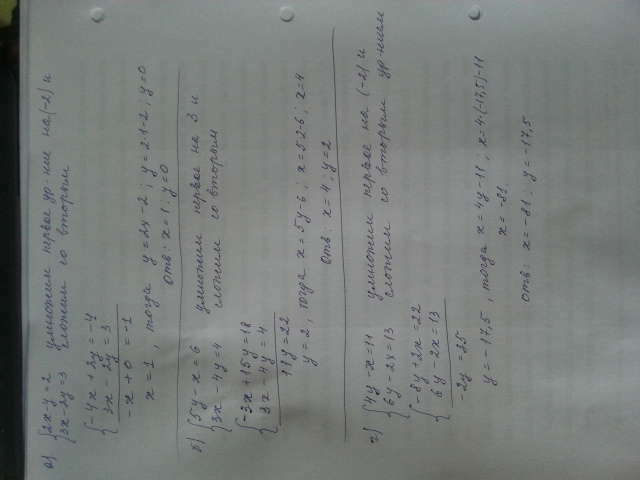 а) {2x-y=2 умножим первое ур-ние на (-2) и
{3x-2y=3 сложим со вторым
{-4x+2y=-4
{3x-2y=3
-x+0=-1
x=1, тогда y=2x-2; y=2·1-2; y=0
отв: x=1; y=0
б) {5y-x=6 умножим первое на 3 и
{3x-4y=4 сложим со вторым
{-3x+15y=18
{3x-4y=4
11y=22
y=2, тогда x=5y-6; x=5·2-6; x=4
отв: x=4; y=2
г) {4y-x=11 умножим первое на (-2) и
{6y-2x=13 сложим со вторым ур-нием
{-8y+2x=22
{6y-2x=13
-2y=35
y=-17,5, тогда x=4y-11; x=4(-17,5)-11
x=-81
отв: x=-81; y=-17,5